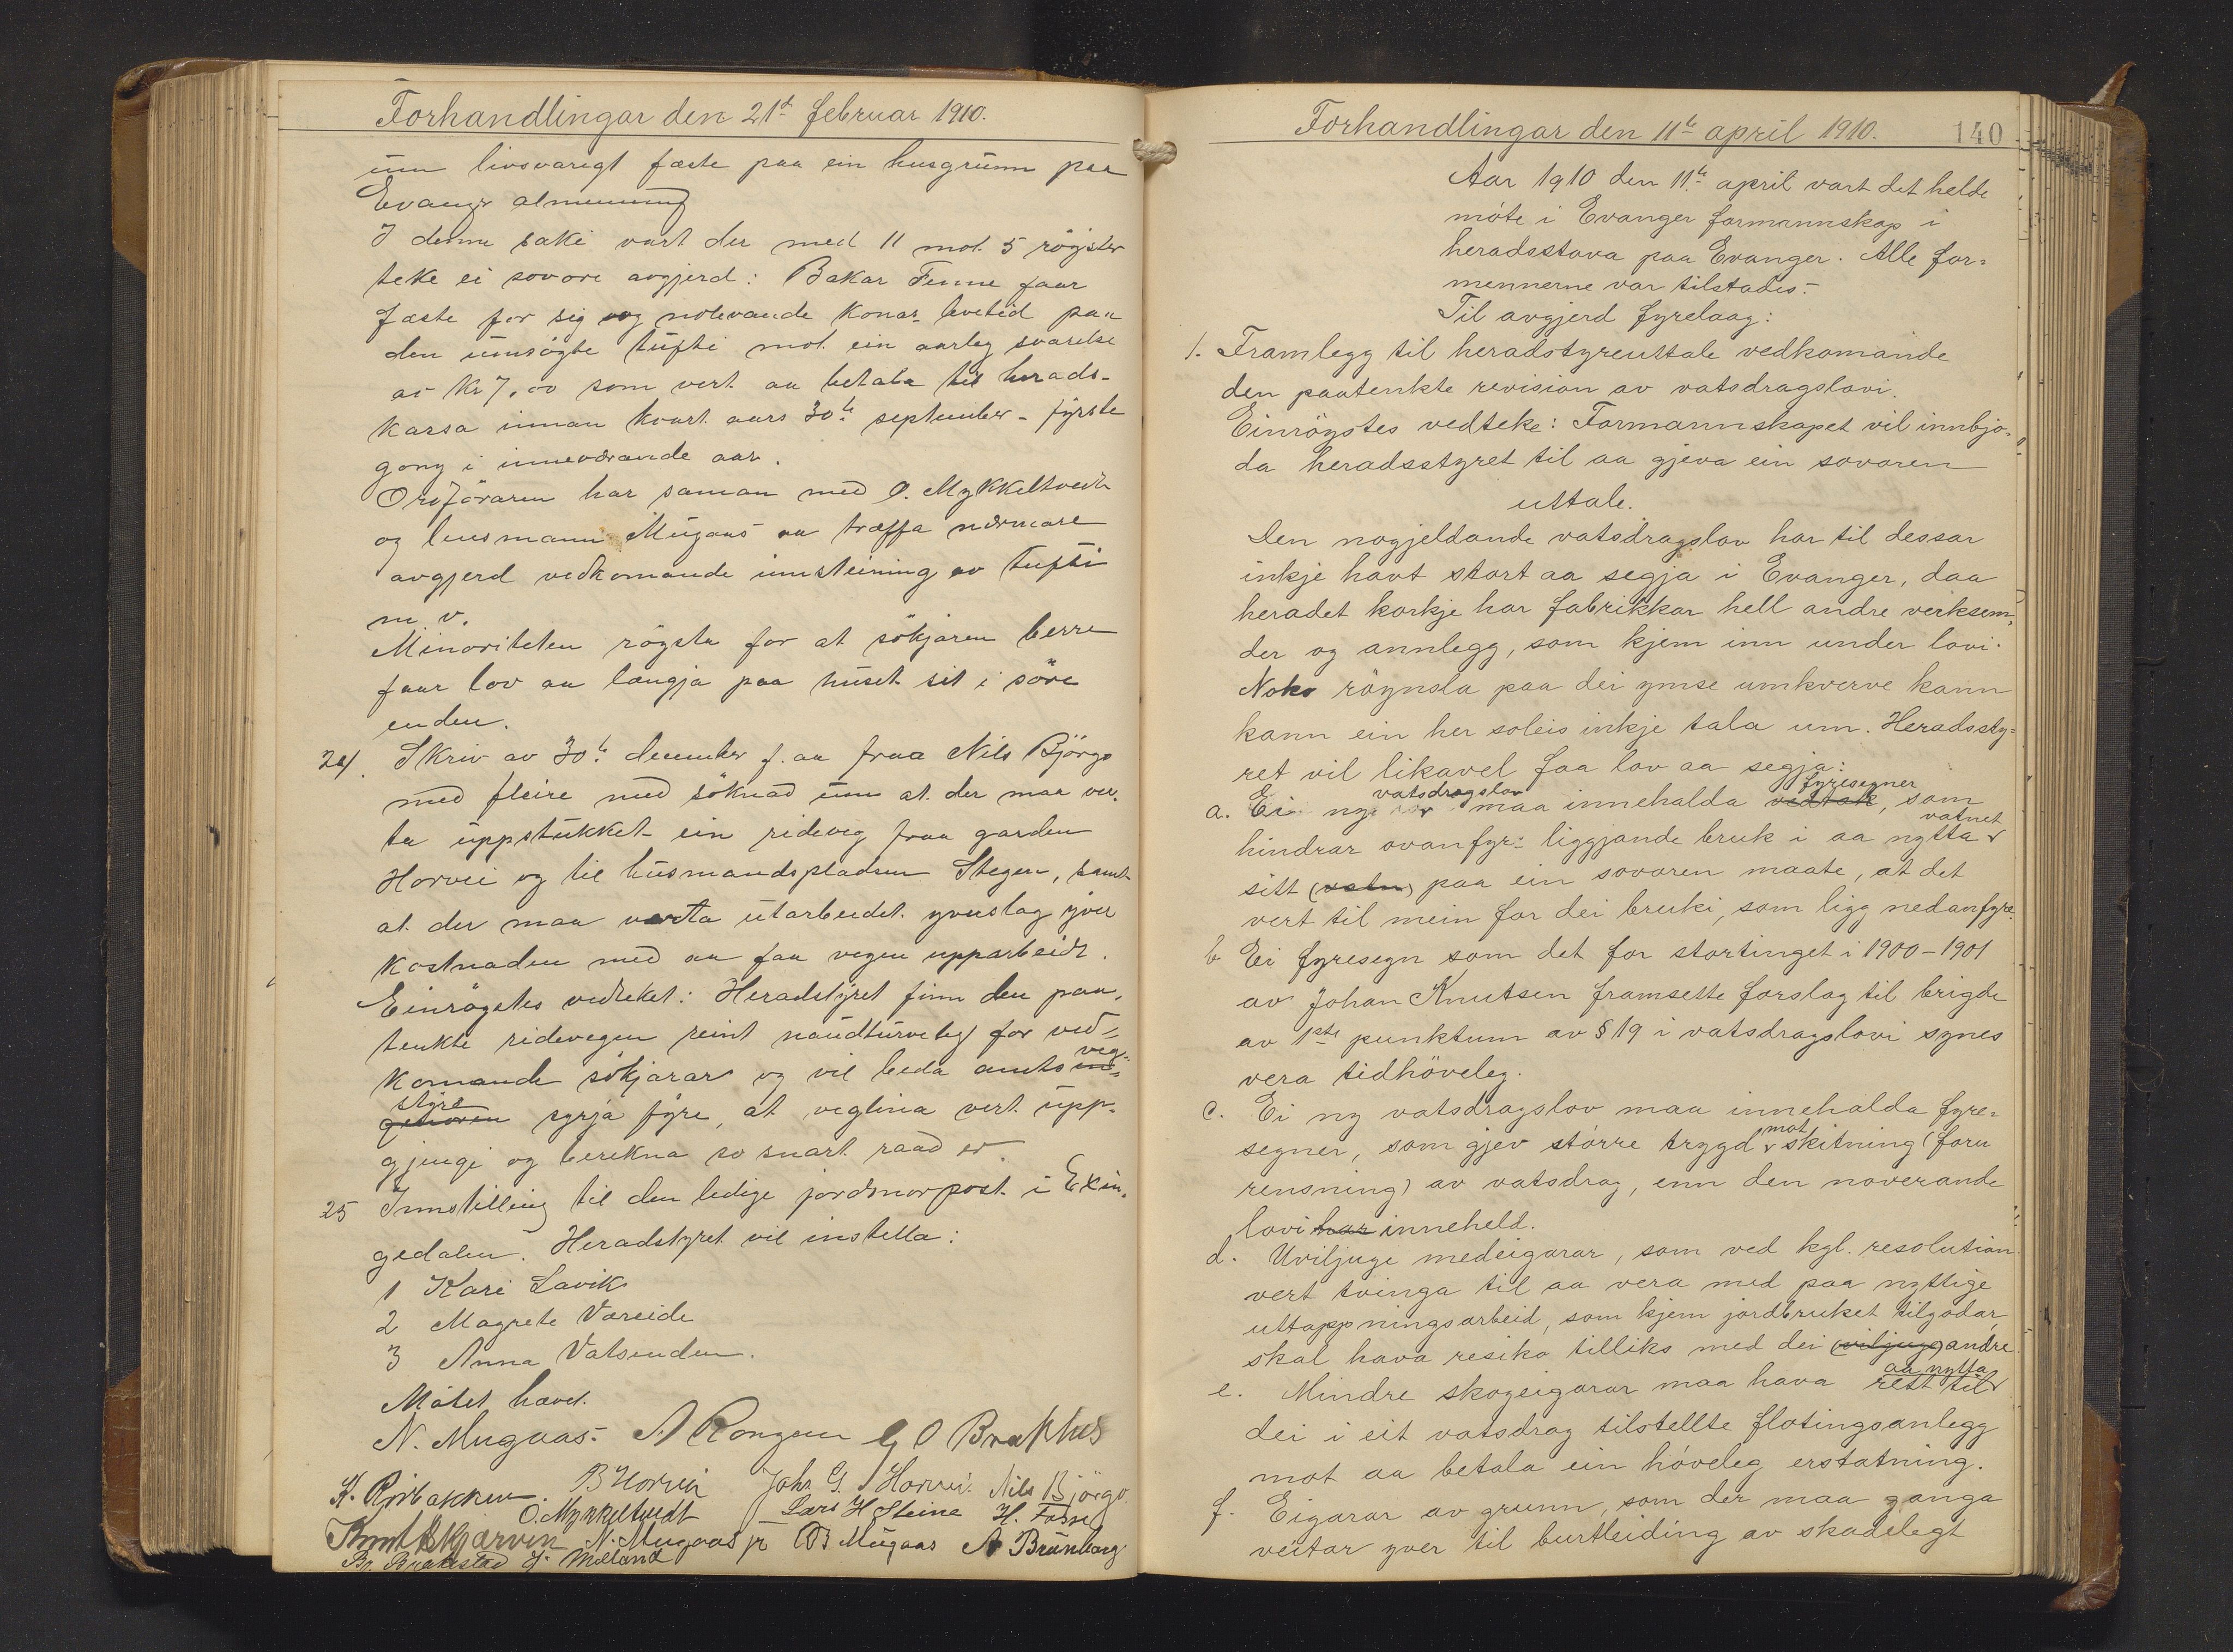 Forhandlingar den 21de februar 1910.
um livsvarigt fæste paa ein husgrunn paa
Evanger almenning
I denne saki vart der med 11 mot 5 röyster
teke ei sovore avgjerd: Bakar Fenne faar
fæste for sig og nolevande konas levetid paa
den umsögte tufti mot ein aarleg svarelse
av Kr 7,00 som vert aa betala til herads-
kassa innan kvart aars 30te september – fyrste
gong i inneværande aar.
Ordföraren har saman med O. Mykkeltvedt
og lensmann Mugaas aa træffa nærmare
avgjerd vedkomande innsteining av tufti
m. v.
Minoriteten röyste for at sökjaren berre
faar lov aa længja paa huset sit i söre
enden.
24. Skriv av 30te december f. aa fraa Nils Björgo
med fleire med söknad um at der maa ver-
ta uppstukket ein rideveg fraa garden
Horvei og til husmandspladsen Stegen, samt
at der maa verta utarbeidet yverslag yver
kostnaden med aa faa vegen upparbeidt.
Einröystes vedteket: Heradstyret finn den paa-
tenkte ridevegen reint naudturveleg for ved-
komande sökjarar og vil beda amts in= veg-
geniören styre syrja fyre, at veglina vert upp-
gjengi og berekna so snart raad er.
25 Innstilling til den ledige jordmorpost i Exin-
gedalen. Heradstyret vil instella:
1 Kari Lavik
2 Magrete Vareide
3 Anna Vatsenden.
Mötet hævd.
N. Mugaas. A Rongen G O Brakhus
K. Rjirbakken B Horvei Johs. G. Horvei. Nils Björgo
O. Mykkeltvedt Lars H Steine H. Fosse
Knut Skjerven N. Mugaas jr B Mugaas A Brünborg
Br. Brakestad J. Mæland
Forhandlingar den 11te april 1910. 140
Aar 1910 den 11te april vart det helde
möte i Evanger formannskap i
heradsstova paa Evanger. Alle for=
mennerne var tilstades.-
Til avgjerd fyrelaag:
1. Framlegg til heradstyreuttale vedkomande
den paatenkte revision av vatsdragslovi.
Einröystes vedteke: Formannskapet vil innbjo-
da heradsstyret til aa gjeva ein sovoren
uttale.
Den nogjeldande vatsdragslov har til dessar
inkje havt stort aa segja i Evanger, daa
heradet korkje har fabrikkar hell andre verksem-
der og annlegg, som kjem inn under lovi.
Noko röynsla paa dei ymse umkverve kann
kann ein her soleis inkje tala um. Heradssty=
ret vil likavel faa lov aa segja:
a. Ei ny vatsdragslov maa innehalda vedtak fyresegner, som
hindrar ovanfyr- liggjande bruk i aa nytta vatnet
sitt (vatn) paa ein sovoren maate, at det
vert til mein for dei bruki, som ligg nedanfyre.
b Ei fyresegn som det for stortinget i 1900–1901
av Johan Knutsen framsette forslag til brigde
av 1ste punktum av § 19 i vatsdragslovi synes
vera tidhöveleg.
c. Ei ny vatsdragslov maa innehalda fyre=
segner, som gjev större trygd mot skitning (foru
rensning) av vatsdrag, enn den noverande
lovi har inneheld.
d. Uviljuge medeigarar, som ved kgl. resolution
vert tvinga til aa vera med paa nyttige
uttappningsarbeid, som kjem jordbruket tilgodar,
skal hava resiko tilliks med dei (viljuge) andre.
e. Mindre skogeigarar maa hava rett til aa nytta
dei i eit vatsdrag tilstellte flotingsanlegg
mot aa betala ein höveleg erstatning.
f. Eigarar av grunn, som der maa ganga
veitar yver til burtleiding av skadelegt